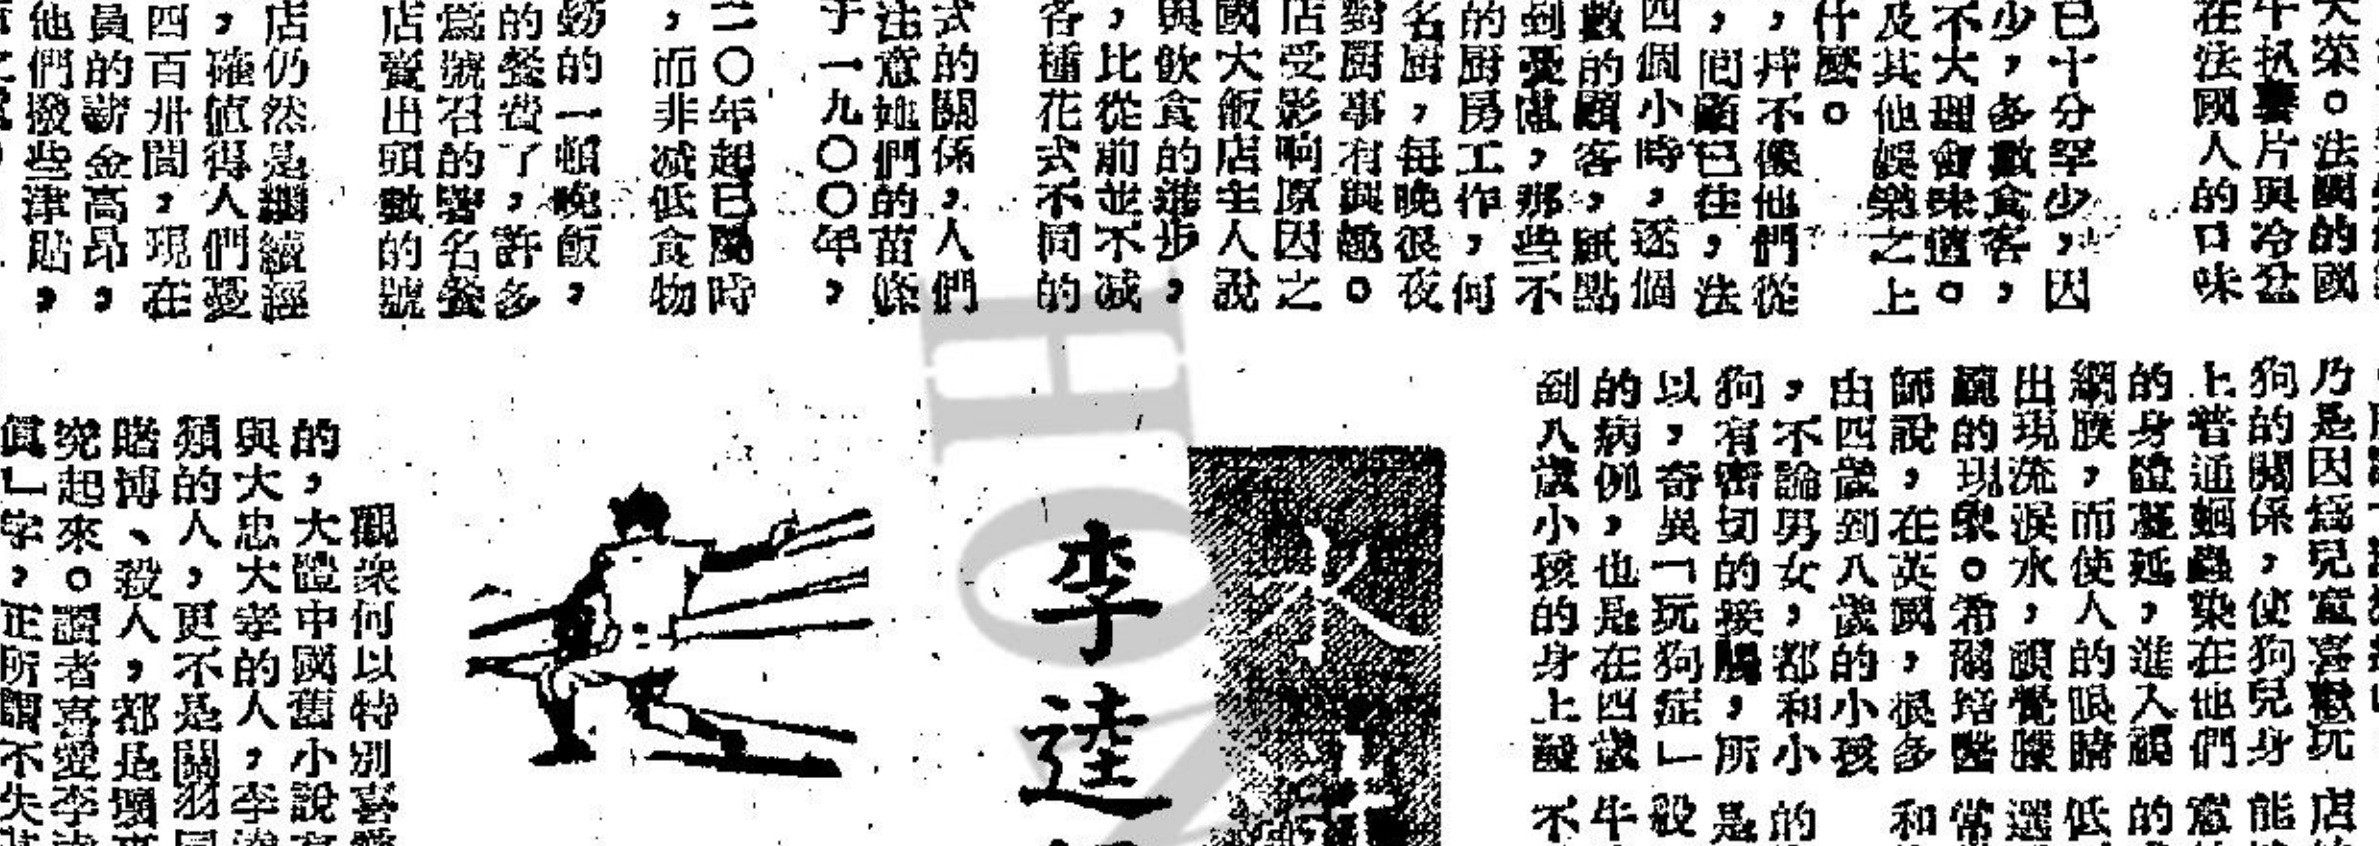 大菜。法國的國
牛扒薯片與冷盆
在法國人的口味
已十分罕少,因
少,多數食客,
不大理會味道。
及其他娛樂之上
什麼。
,拼不像他們從
,間顧已往,法
四個小時,逐個
數的顧客,祇點
到憂慮,那些不
的厨房工作,何
名厨,每晚很夜
對厨事有興趣。
店受影响原因之
國大飯店主人說
與飲食的進步,
,比從前並不減
各種花式不同的
式的關係,人們
注意她們的苗條
于一九〇〇年,
二〇年起已屬時
,而非减低食物
的一頓晚飯,
的餐費了,許多
爲號召的著名餐
店賣出頭數的號
店仍然是繼續經
,確值得人們憂
四百卅間,現在
員的薪金高昂,
他們撥些津貼,
乃是因爲兒童喜歡玩
狗的關係,使狗兒身
上普通蛔蟲染在他們
的身體蔓延,進入
網膜,而使人的眼睛
出現流淚水,頓覺朦
的現象。希爾培醫
師說,在英國,很多
由四歲到八歲的小孩
,不論男女,都和小
狗有密切的接觸,所
以,奇異「玩狗症」
的病例,也是在四歲
到八歲小孩的身上發
店
能
意
的
低
選
常
和
的
是
般
牛
不
水
李逵
觀衆何以特別喜愛
的,大體中國舊小說
與大忠大孝的人,李逵
類的人,更不是關羽
賭博、殺人,都是壞事
究起來。讀者喜愛李逵
眞」字,正所謂不失其